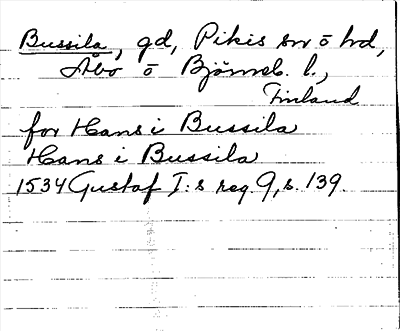 Bussila, gd, Pikis sn o hd,
Åbo o Björneb. l.,
Finland
for Hans i Bussila
Hans i Bussila
1534 Gustaf I:s reg. 9, s. 139.